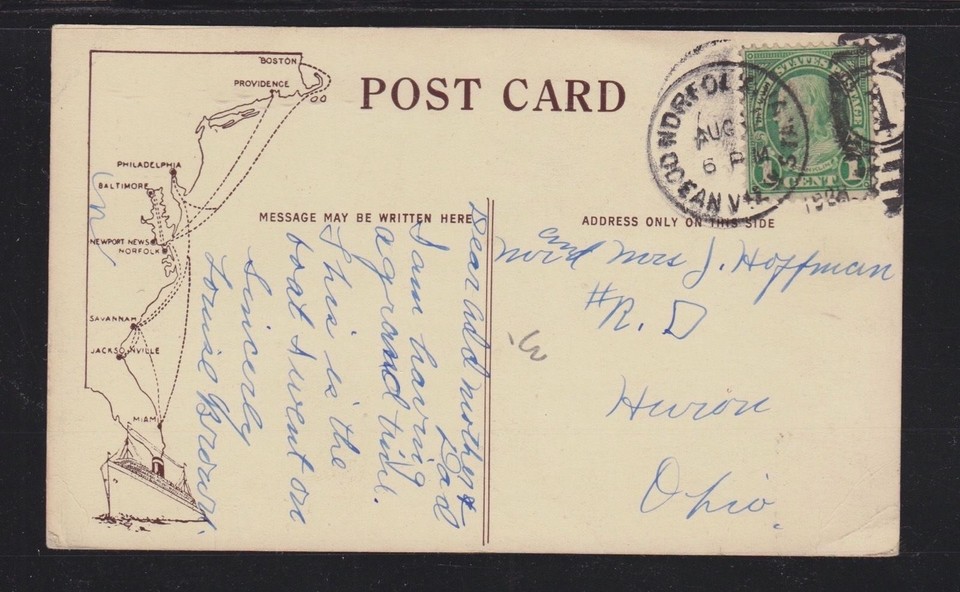 POST CARD
BOSTON
PROVIDENCE
PHILADELPHIA
BALTIMORE
NEWPORT NEWS
NORFOLK
SAVANNAH
JACKSONVILLE
MIAMI
MESSAGE MAY BE WRITTEN HERE
Dear add mother &
Dad
I am having
a grand time.
This is the
boat I went on
Sincerly
Louise Brown
ADDRESS ONLY ON THIS SIDE
NORFOLK
AUG
6 P M
OCEANVIEW STA.
UNITED STATES POSTAGE
1 CENT 1
and
Mrs J. Hoffman
#R. D
Huron
Ohio.